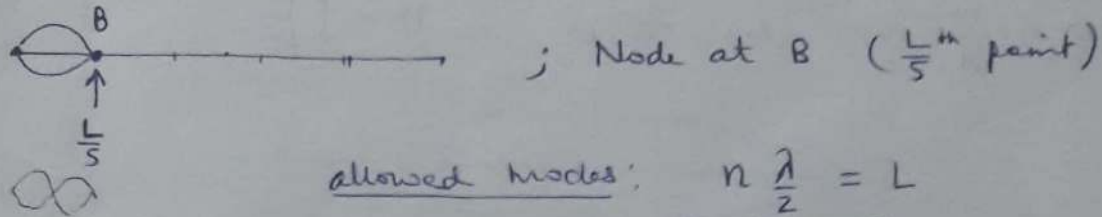 B
; Node at B (L/5 th point)
L/5
allowed modes: n λ/2 = L